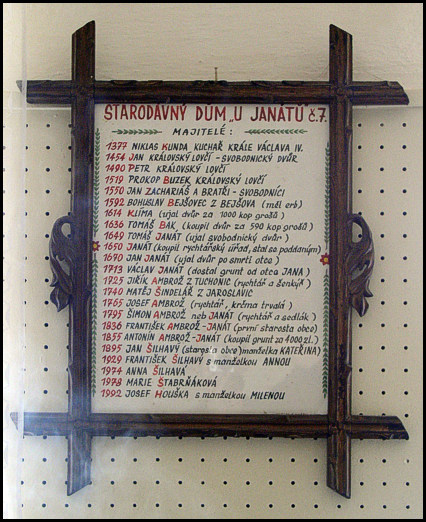 STARODÁVNÝ DŮM „U JANÁTŮ" č.7.
MAJITELÉ:
1377 NIKLAS KUNDA KUCHAŘ KRÁLE VÁCLAVA IV.
1454 JAN KRÁLOVSKÝ LOVČÍ - SVOBODNICKÝ DVŮR
1490 PETR KRÁLOVSKÝ LOVČÍ
1519 PROKOP BUZEK KRÁLOVSKÝ LOVČÍ
1550 JAN ZACHARIÁŠ A BRATŘI - SVOBODNÍCI
1592 BOHUSLAV BEJŠOVEC Z BEJŠOVA (měl erb)
1614 KLÍMA (ujal dvůr za 1000 kop grošů)
1636 TOMÁŠ BÁK (koupil dvůr za 590 kop grošů)
1649 TOMÁŠ JANÁT (ujal svobodnický dvůr)
1650 JANÁT (koupil rychtářský úřad, stal se poddaným)
1670 JAN JANÁT (ujal dvůr po smrti otce)
1713 VÁCLAV JANÁT (dostal grunt od otce JANA)
1725 JIŘÍK AMBROŽ Z TUCHONIC (rychtář a šenkýř)
1740 MATĚJ ŠINDELÁŘ Z JAROSLAVIC
1765 JOSEF AMBROŽ (rychtář, krčma trvalá)
1795 ŠIMON AMBROŽ neb JANÁT (rychtář a sedlák)
1836 FRANTIŠEK AMBROŽ-JANÁT (první starosta obce)
1855 ANTONÍN AMBROŽ-JANÁT (koupil grunt za 4000 zl.)
1895 JAN ŠILHAVÝ (starosta obce) manželka KATEŘINA)
1929 FRANTIŠEK ŠILHAVÝ s manželkou ANNOU
1974 ANNA ŠILHAVÁ
1978 MARIE ŠTABRŇÁKOVÁ
1992 JOSEF HOUŠKA s manželkou MILENOU